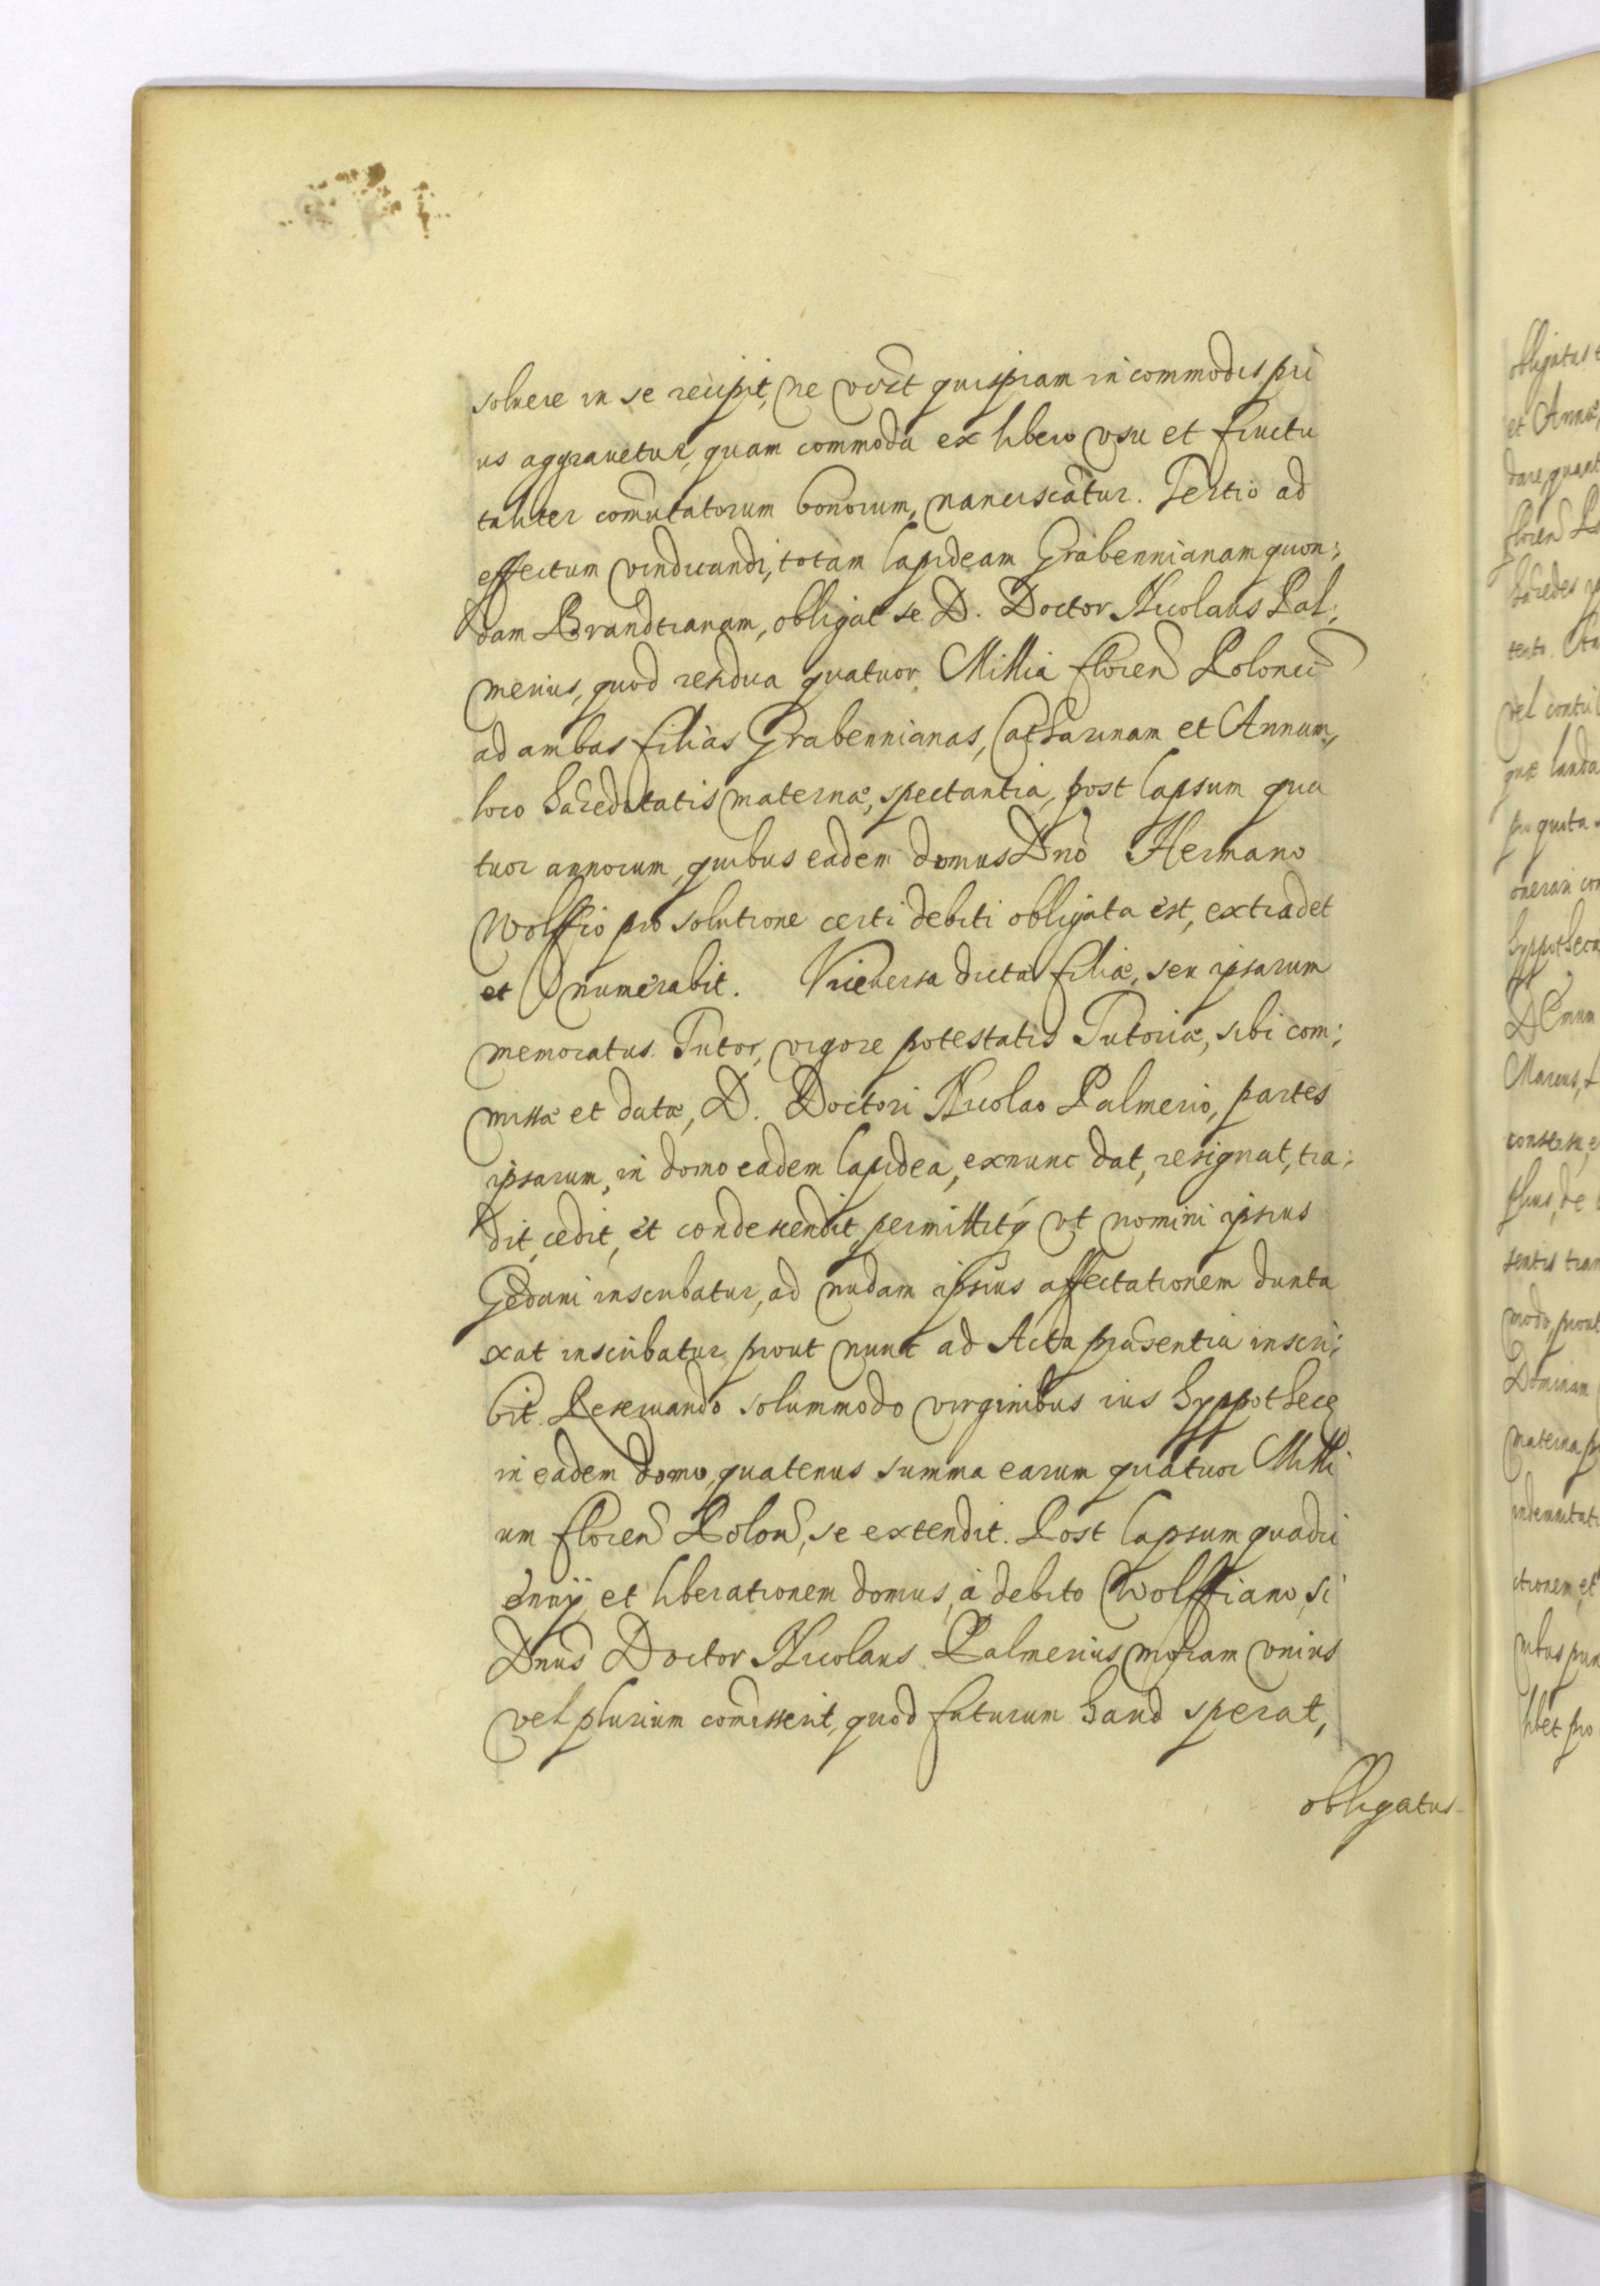 soluere in se recipit, ne vt quispiam incommodis pri
us aggrauetur, quam commoda ex libero vsu et fructu
taliter comutatorum bonorum, nanciscatur. Tertio ad
effectum vindicandi, totam lapideam Grabennianam quon:
dam Brandtianam, obligat se D. Doctor Nicolaus Pal:
merius, quod residua quatuor Millia floren Polonic
ad ambas filias Grabennianas, Catharinam et Annam,
loco haereditatis maternæ, spectantia, post lapsum qua
tuor annorum, quibus eadem domus Dno Hermano
Wolffio pro solutione certi debiti obligata est, extradet
et numerabit. Viceuersa dictæ filiæ, seu ipsarum
memoratus Tutor, vigore potestatis Tutoriæ, sibi com:
missæ et datæ, D. Doctori Nicolao Palmerio, partes
ipsarum, in domo eadem lapidea, exnunc dat, resignat, tra:
dit, cedit, et condescendit, permittitq vt nomini ipsius
Gedani inscribatur, ad nudam ipsius affectationem dunta
xat inscribatur, prout nunc ad Acta præsentia inscri:
bit. Reseruando solummodo virginibus ius hyppothecę
in eadem domo, quatenus summa earum quatuor Milli
um floren Polon, se extendit. Post lapsum quadri
ennij et liberationem domus, à debito Wolffiano, si
Dnus Doctor Nicolaus Palmerius moram vnius
vel plurium comisserit, quod futurum haud sperat,
obligatus
obligatus
et Annæ,
dare, quant
floren Po
hæredes
tento
vel contul
quæ landa
pro quota
onerari con
hyppotheca
Demum
Marcus,
consorte, e
filius, de
sentis tran
modo, prout
Dominam
materna, p
indemnitat
ctionem, et
libet pro